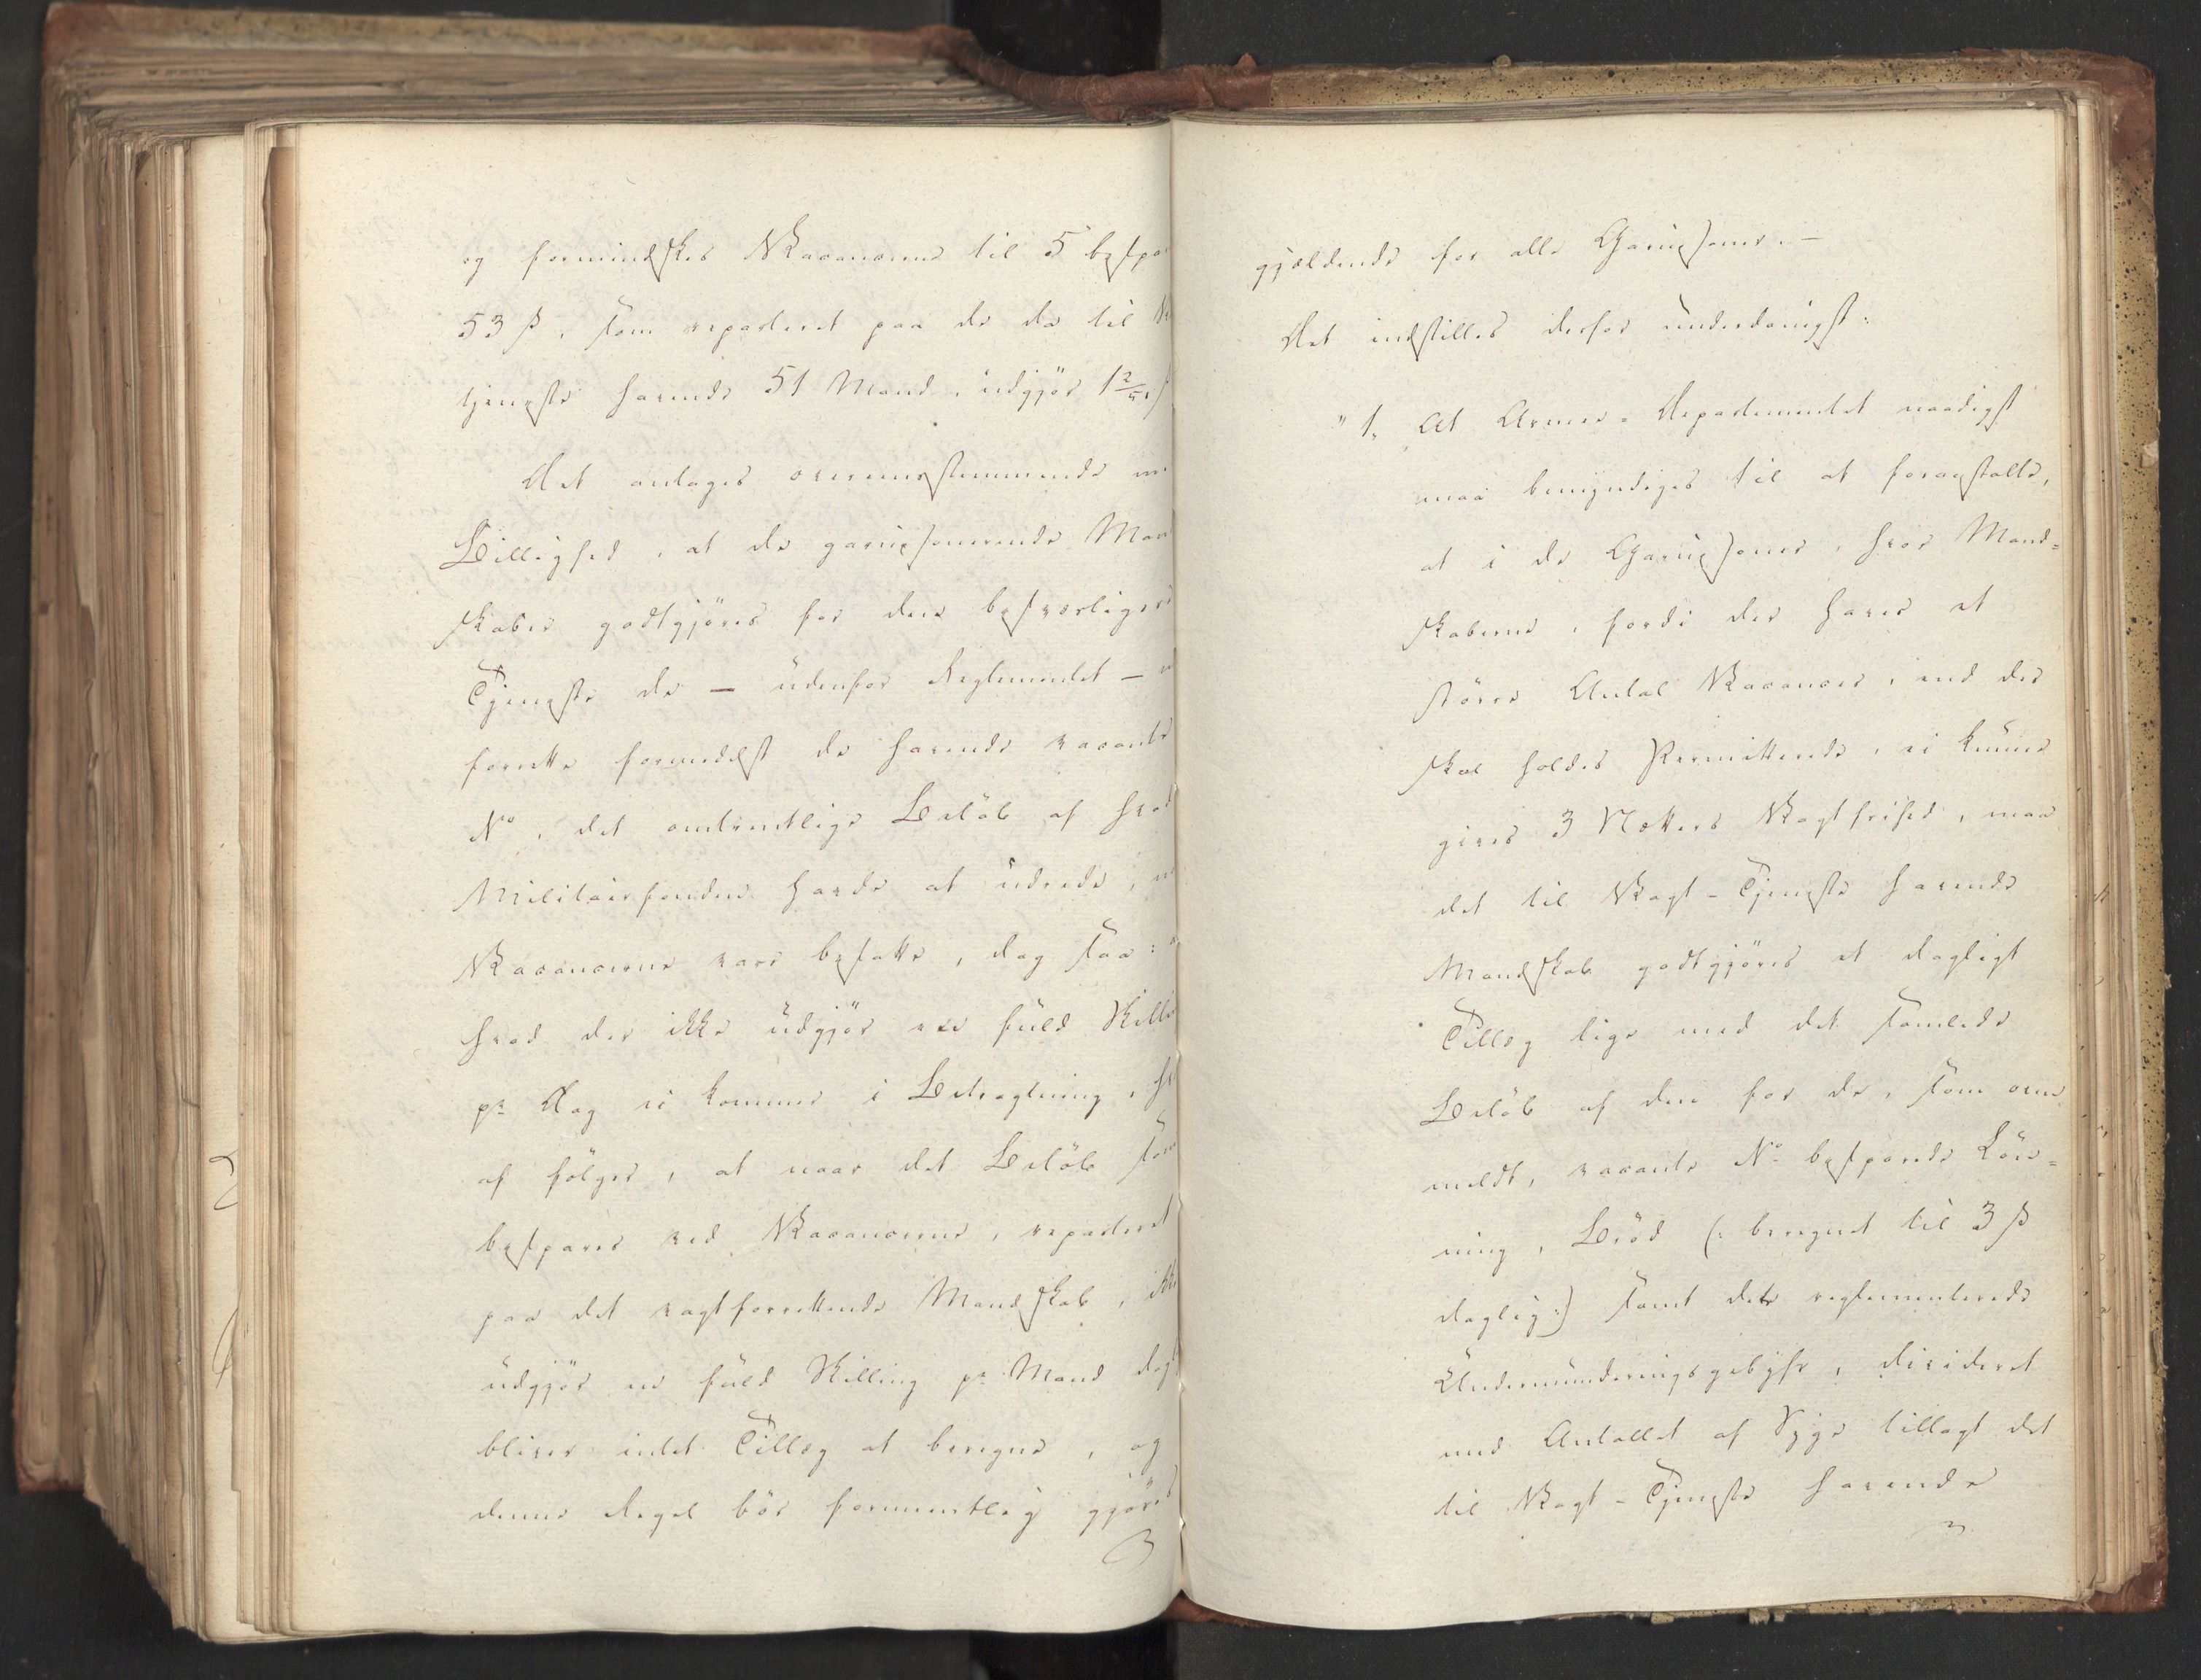 og formindskes Vacancerne til 5 bespa
53 ß, som reparteret paa de da til V
tjeneste havende 51 Mand, udgjör 1 2/51 ß
Det antages overensstemmende m
Billighed, at de garnisonerende Man
skaber godtgjöres for den besværligere
Tjeneste de — udenfor Reglementet —
forrette formedelst de havende vacante
No, det omtrentlige Belöb af hvad
Militairfonden havde at udrede,
Vacancerne vare besatte, dog saa:
hvad der ikke udgjör een fuld Skilli
pr Dag ei kommer i Betragtning, h
af fölger, at naar det Belöb som
bespares ved Vacancerne, reparteret
paa det vagtforrettende Mandskab, ikke
udgjör en fuld Skilling pr Mand dagl
bliver intet Tillæg at beregne, og
denne Regel bör formeentlig gjöres
gjældende for alle Garnisoner. —
Det indstilles derfor underdanigst:
"1, At Armee-Departementet naadigst
maa bemyndiges til at foranstalte,
at i de Garnisoner, hvor Mand=
skaberne, fordi der haves et
större Antal Vacancer, end der
skal holdes Permitterede, ei kunne
gives 3 Nætters Vagtfrihed, maa
det til Vagt-Tjeneste havende
Mandskab godtgjöres et dagligt
Tillæg lige med det samlede
Belöb af den for de, som oven
meldt, vacante No besparede Lön=
ning, Bröd (: beregnet til 3 ß
daglig :) samt det reglementerede
Undermunderingsgebyhr, divideret
med Antallet af Syge tillagt det
til Vagt-Tjeneste havende